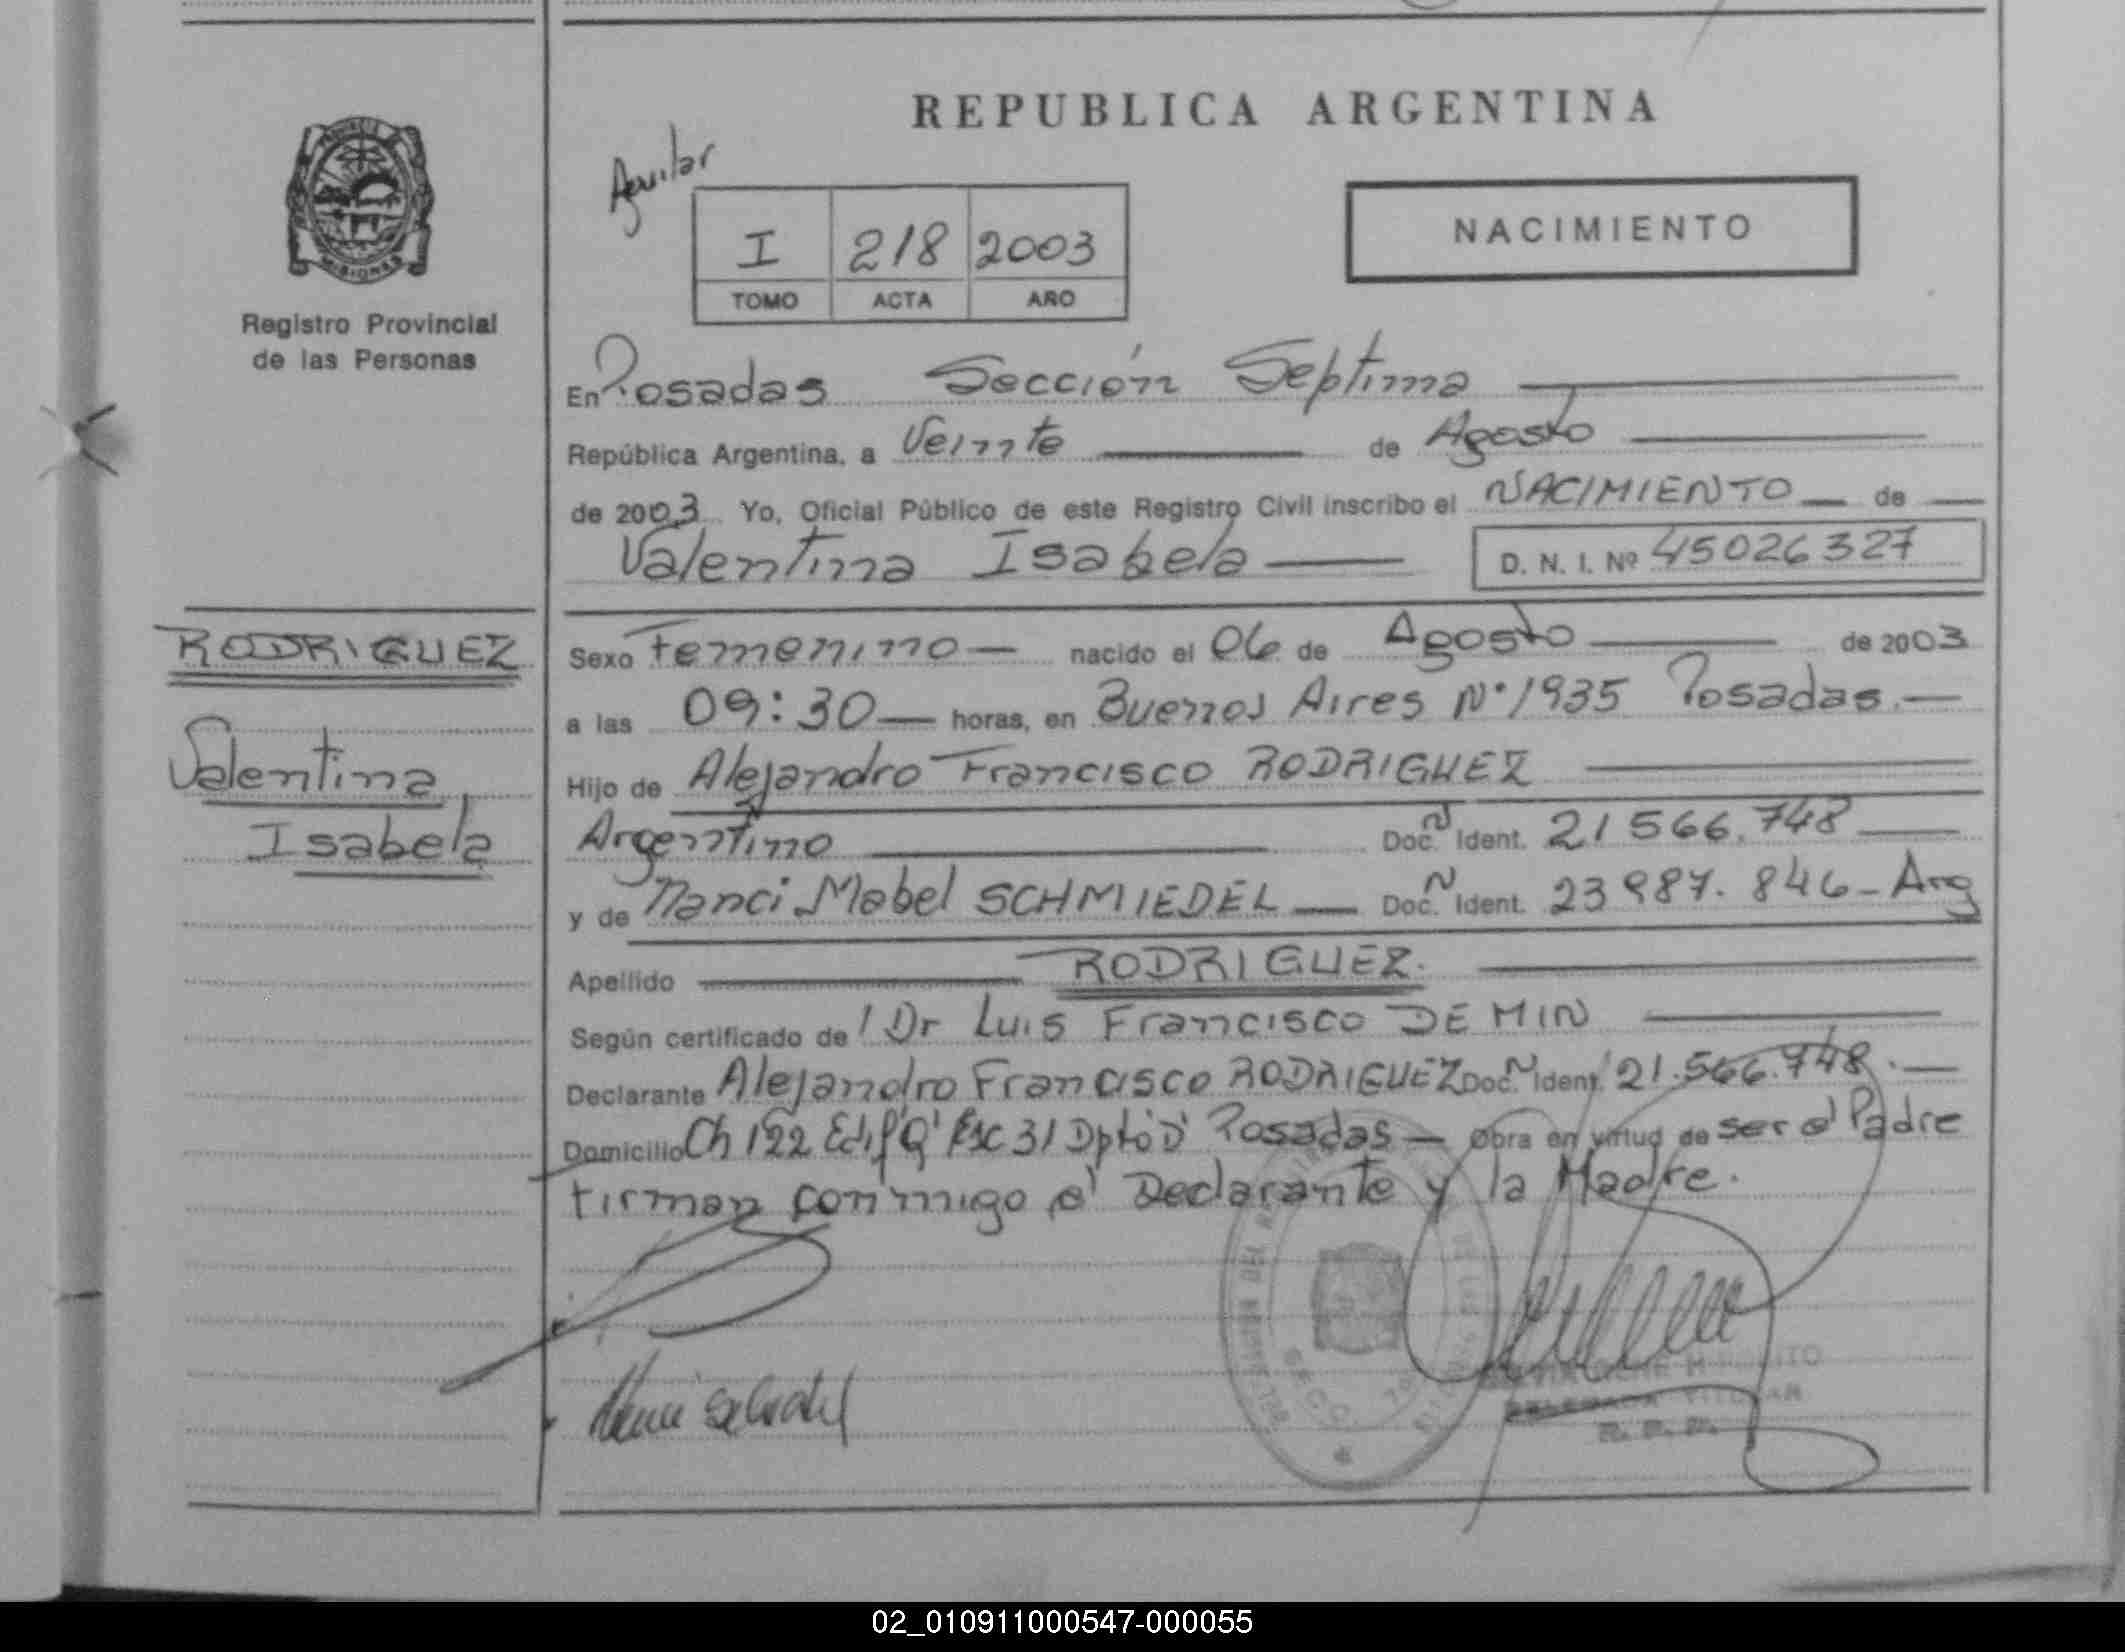 REPUBLICA ARGENTINA
Aguilar
I 218 2003
TOMO ACTA AÑO
NACIMIENTO
MISIONES
Registro Provincial
de las Personas
En Posadas Sección Septima
República Argentina, a Veinte de Agosto
de 2003 Yo, Oficial Público de este Registro Civil inscribo el NACIMIENTO de
Valentina Isabela D. N. I. Nº 45026327
RODRIGUEZ
Valentina
Isabela
Sexo Femenino nacido el 06 de Agosto de 2003
a las 09:30 horas, en Buenos Aires N° 1935 Posadas.
Hijo de Alejandro Francisco RODRIGUEZ
Argentino Doc. N Ident. 21 566.748
y de Nanci Mabel SCHMIEDEL Doc. N Ident. 23 987. 846 - Arg
Apellido RODRIGUEZ.
Según certificado de Dr Luis Francisco DE MIN
Declarante Alejandro Francisco RODRIGUEZ Doc. N Ident. 21.566.748.
Domicilio Ch 122 Edif 'Q' Esc 31 Dpto 'D' Posadas - Obra en virtud de ser el Padre
Firman conmigo el Declarante y la Madre.
R. P. P.
02_010911000547-000055